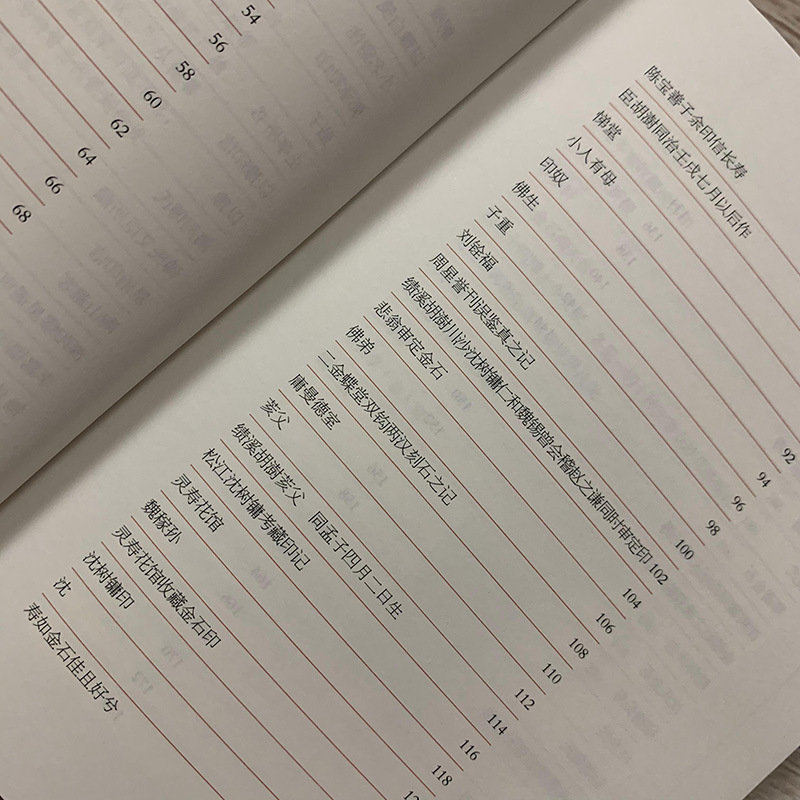 54
56
58
60
62
64
66
68
陈宝善子余印信长寿
臣胡澍同治壬戌七月以后作
悌堂
小人有母
印奴 92
佛生 94
子重 96
刘铨福 98
周星誉刊误鉴真之记 100
绩溪胡澍川沙沈树镛仁和魏锡曾会稽赵之谦同时审定印 102
悲翁审定金石 104
佛弟 106
二金蝶堂双钩两汉刻石之记 108
庸曼德室 110
荄父 112
绩溪胡澍荄父 同孟子四月二日生 114
松江沈树镛考藏印记 116
灵寿花馆 118
魏稼孙
灵寿花馆收藏金石印
沈树镛印
沈
寿如金石佳且好兮